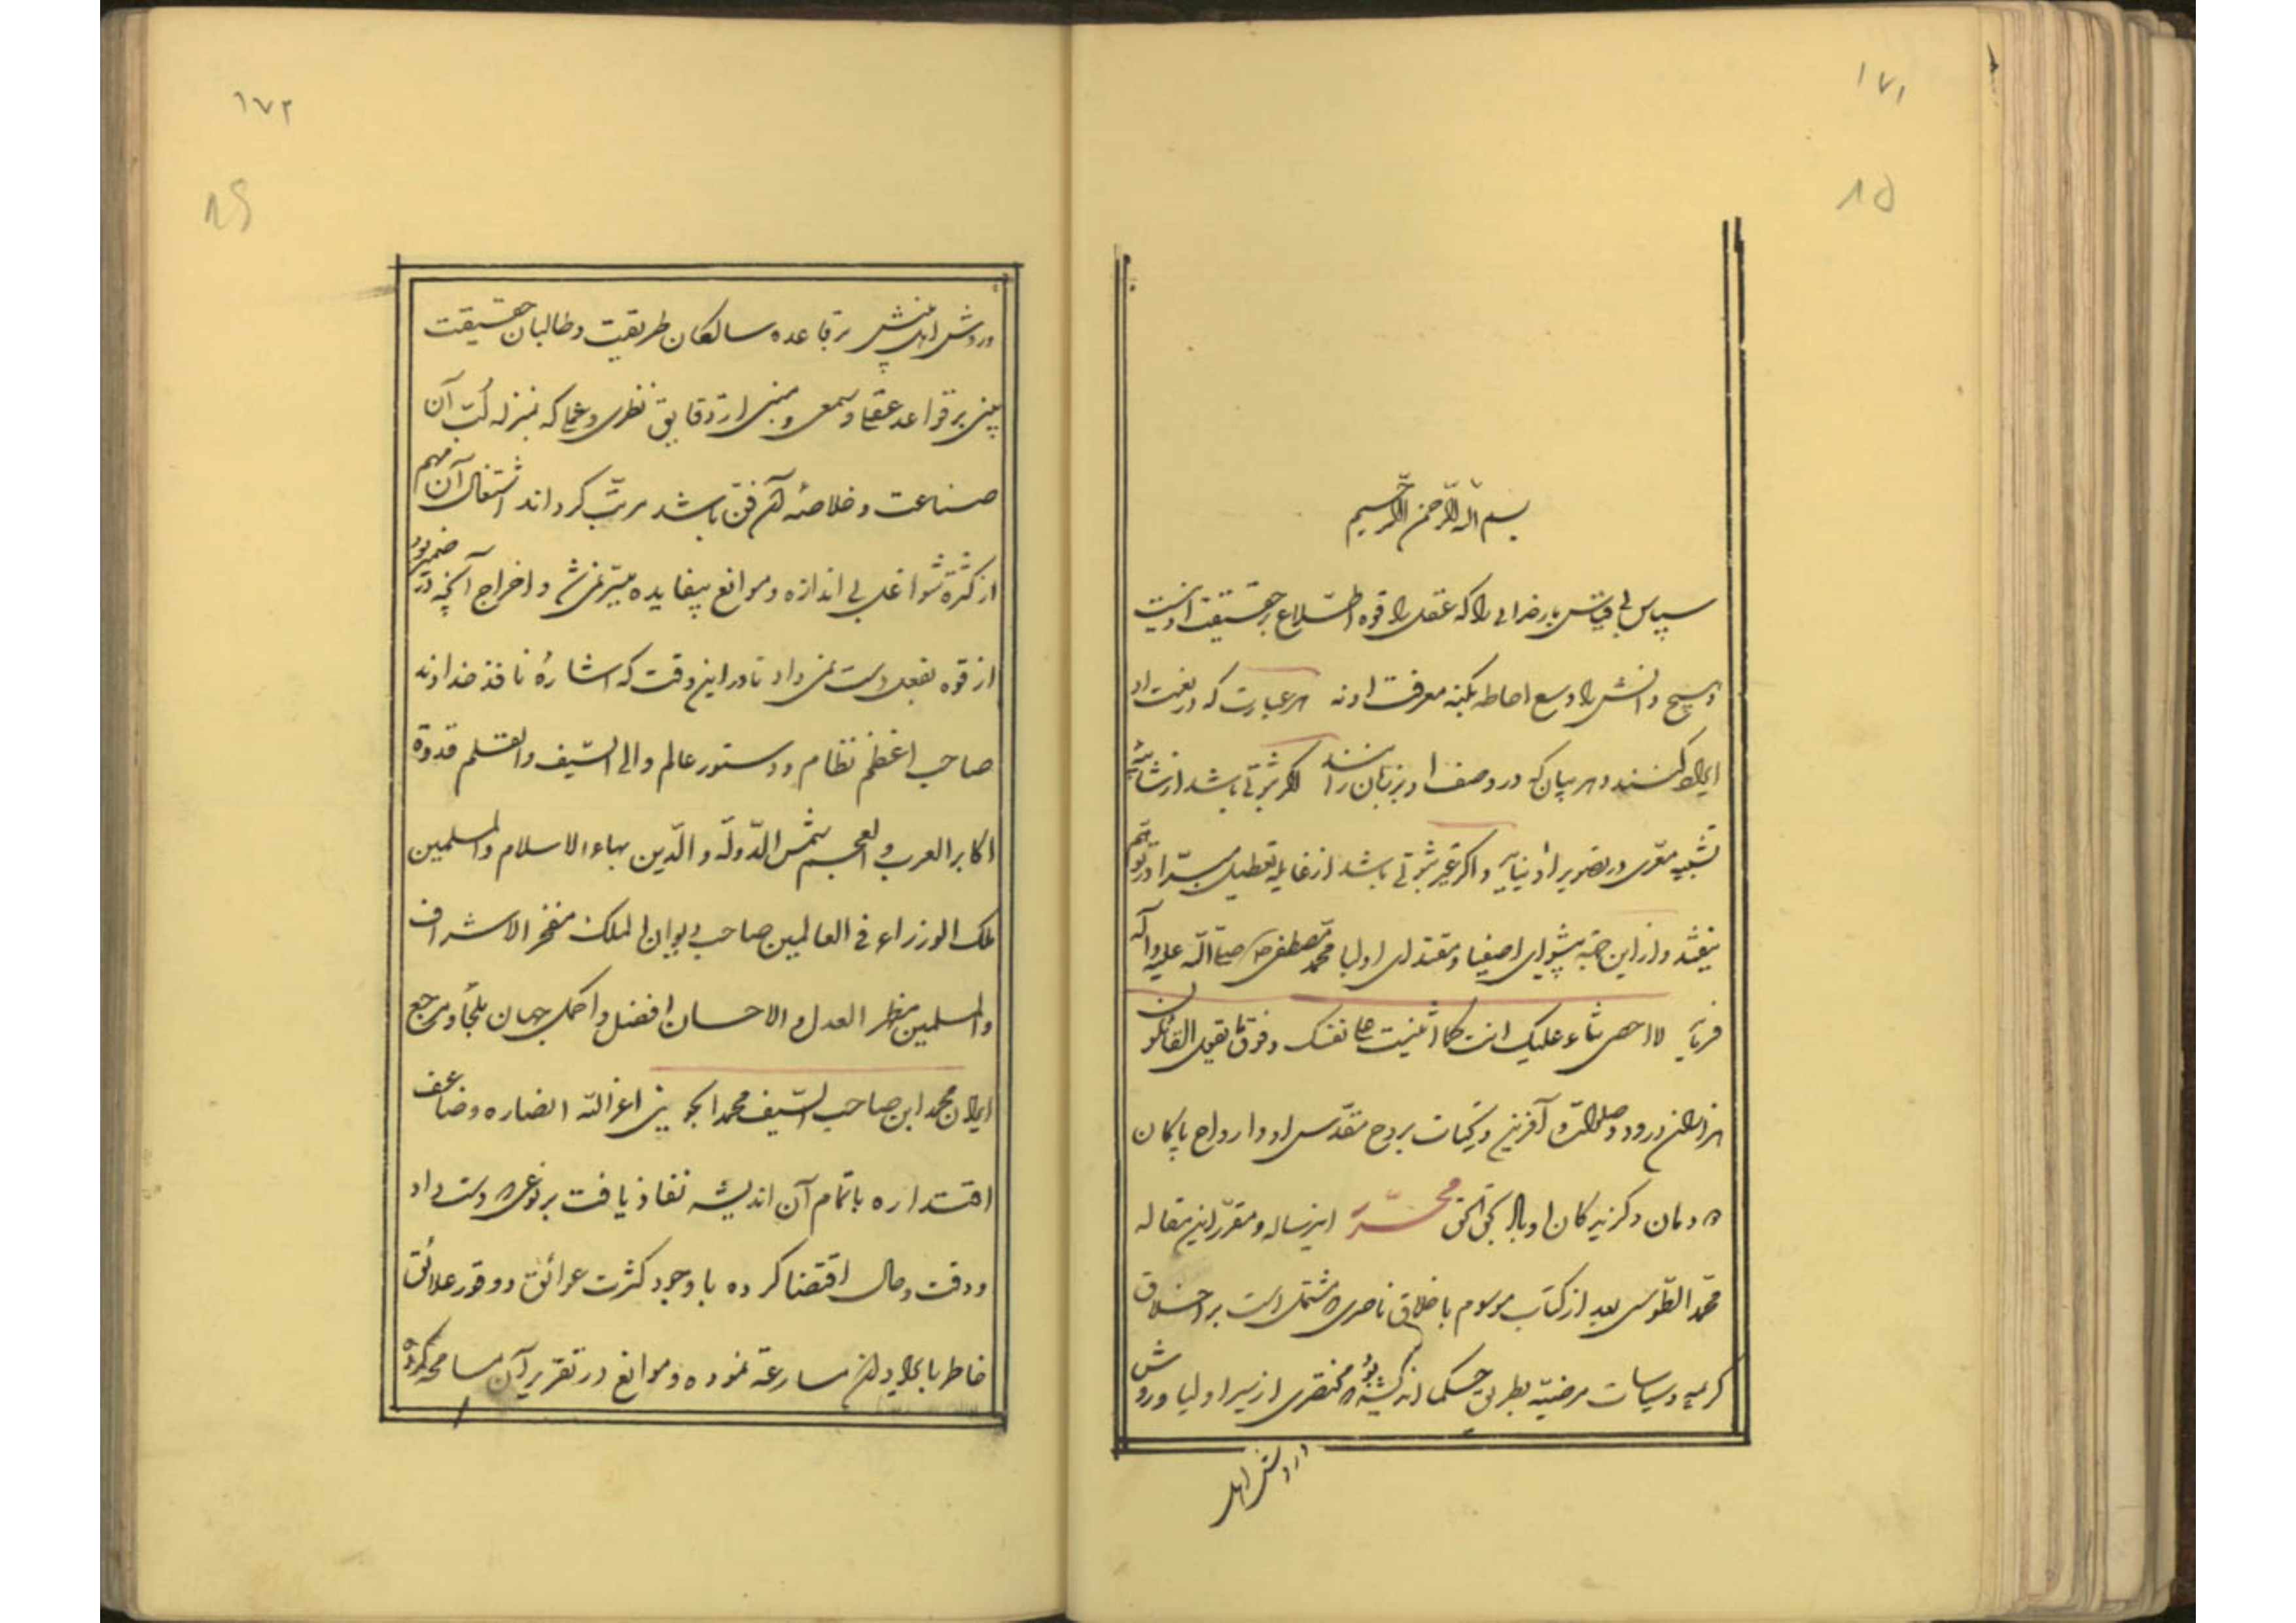 ۱۷۱
۸۵
بسم الله الرحمن الرحیم
سپاس بی قیاس بار خدایی را که عقل را قوه اطلاع بر حقیقت او نیست
و هیچ دانش را وسع احاطه بکنه معرفت او نه هر عبارت که در نعت او
ایراد کنند و هر بیان که در وصف او بر زبان رانند اگر ثبوتی باشد از شائبه
تشبیه معری در تصویر او نیاید و اگر غیر ثبوتی باشد از غایله تعطیل مبرا در توهم
نیفتد و از این جهة پیشوای اصفیا و مقتدای اولیا محمد مصطفی صلی الله علیه و آله
فرماید لا احصی ثناء علیک انت کما اثنیت علی نفسک و فوق ما یقول القائلون
هزاران درود و صلوات و آفرین و تحیات بر روح مقدس او و ارواح پاکان
دودمان و گزیدکان او باد بحق الحق محرر این رساله و مقرر این مقاله
محمد الطوسی بعد از کتاب موسوم باخلاق ناصری مشتمل است بر اخلاق
کریمه و سیاسات مرضیه بطریق حکما اندیشه بود مختصری از سیر اولیا و روش
و روش اهل
۱۷۲
۸۶
و روش اهل بینش بر قاعده سالکان طریقت و طالبان حقیقت
مبنی بر قواعد عقلی و سمعی و منبی از دقایق نظری و عملی که بمنزله لب آن
صناعت و خلاصه آن فن باشد مرتب کرداند اشتغال آن مهم
از کثرة شواغل بی اندازه و موانع بیفایده میسر نمی شد و اخراج آنچه در ضمیر بود
از قوه بفعل دست نمی داد تا در این وقت که اشارهٔ نافذ خداوند
صاحب اعظم نظام و دستور عالم والی السیف و القلم قدوة
اکابر العرب و العجم شمس الدولة و الدین بهاء الاسلام و المسلمین
ملک الوزراء فی العالمین صاحب دیوان الملک مفخر الاشراف
و المسلمین مظهر العدل و الاحسان افضل و اکمل جهان ملجأ و مرجع
ایران محمد ابن صاحب السیف محمد الجوینی اعز الله انصاره و ضاعف
اقتداره باتمام آن اندیشه نفاذ یافت بر نوعی که دست داد
و وقت و حال اقتضا کرده با وجود کثرت عوائق و وفور علائق
خاطر بایراد آن مسارعة نموده و موانع در تقریر آن مسامحه کرده